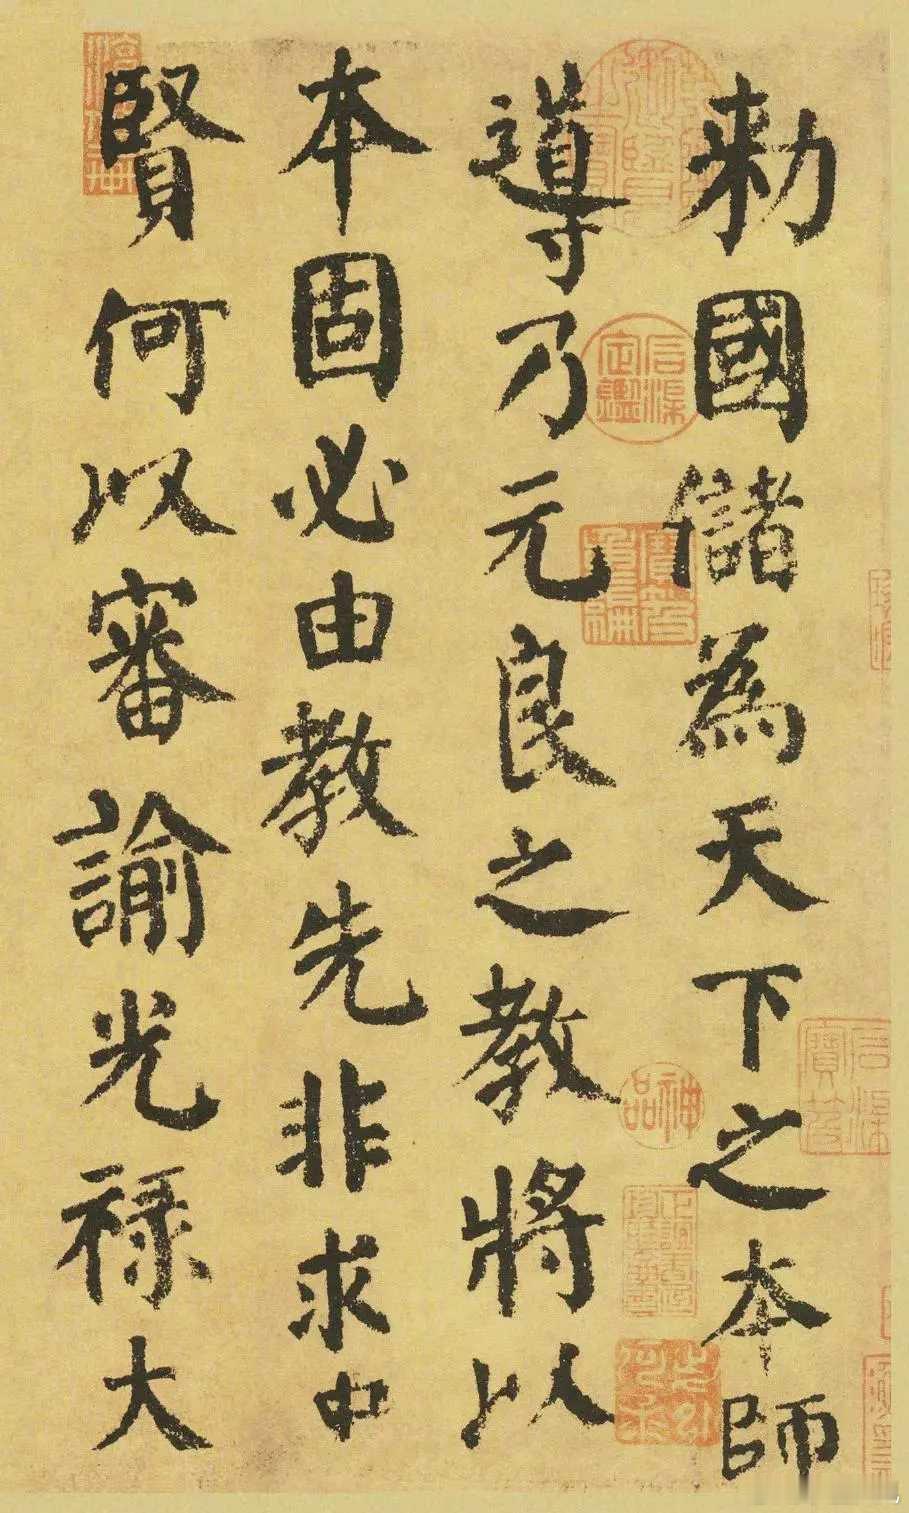 勅國儲為天下之本師
導乃元良之教將以
本固必由教先非求中
賢何以審諭光禄大
神品